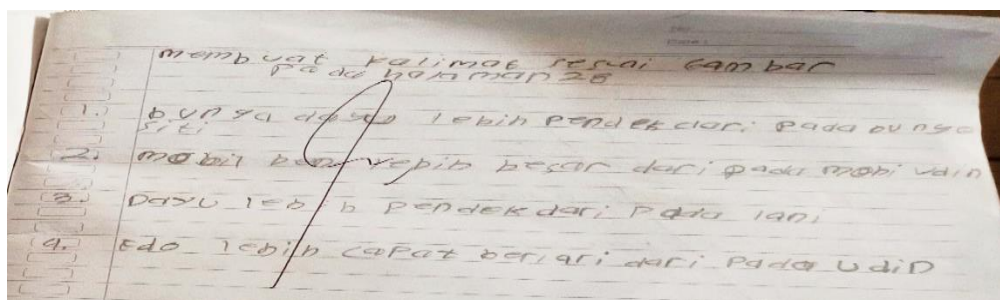 membuat kalimat sesuai gambar
pada halaman 28
1. bunga dayu lebih pendek dari pada bunga
siti
2. mobil beni lebih besar dari pada mobi udin
3. Dayu lebih pendek dari pada lani
4. Edo lebih capat berlari dari pada udin